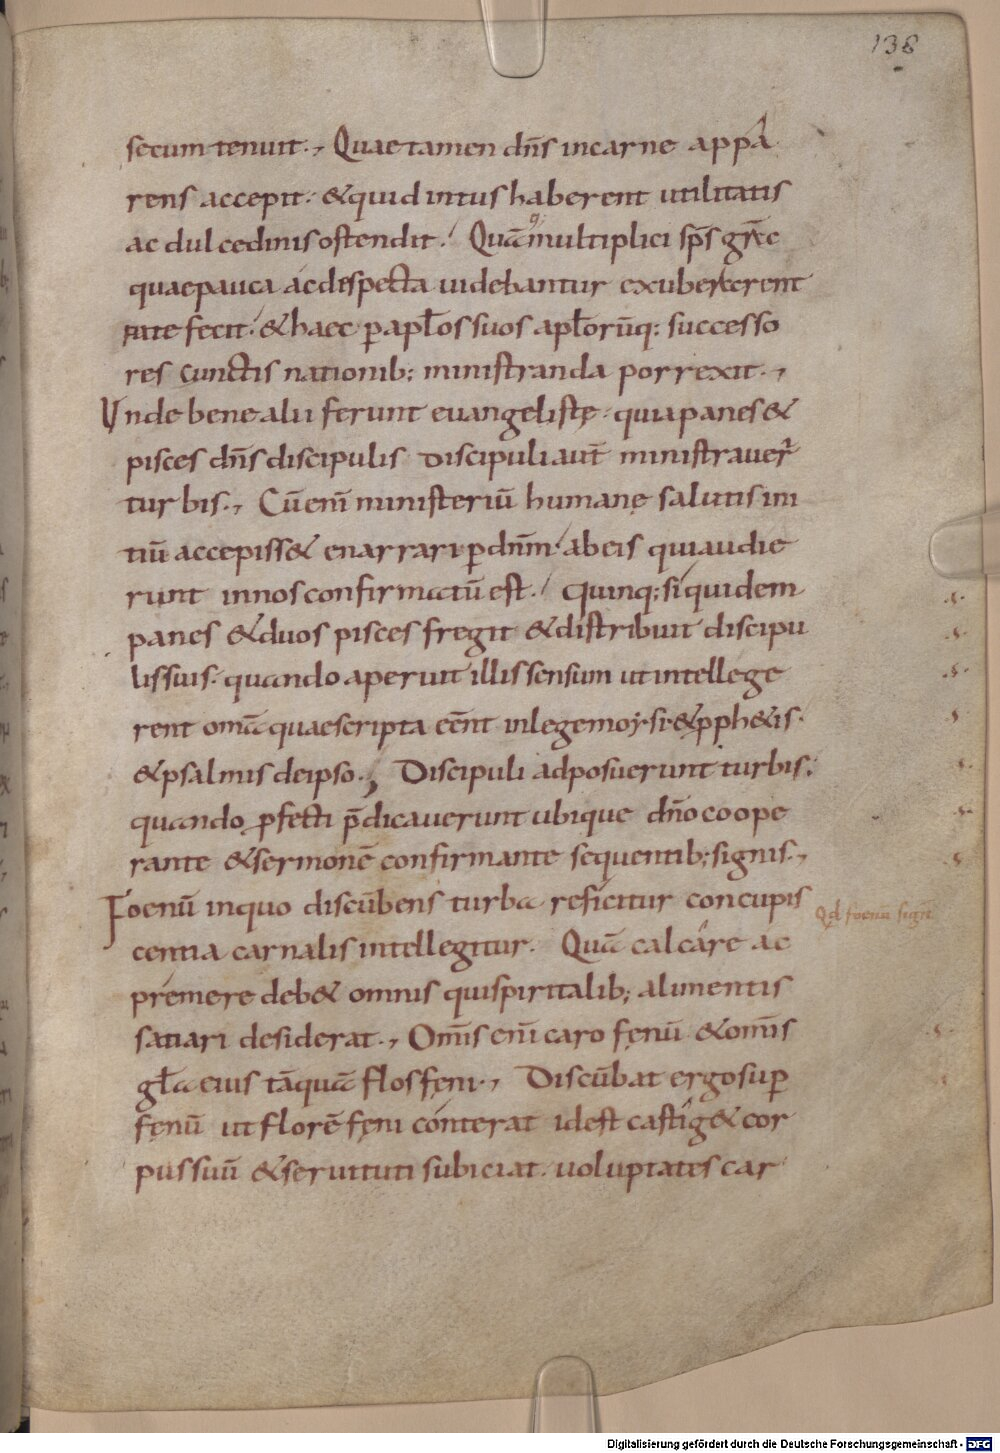 138
secum tenuit., Quae tamen dn̄s in carne appa
rens accepit. & quid intus haberent utilitatis
ac dulcedinis ostendit. Quāq; multiplici sp̄s
quae pauca ac despecta uidebantur exuberarent
fecit. & haec p̱ apłos suos apłorūq: successo
res cunctis nationib; ministranda porrexit.,
Unde bene alii ferunt euangelistę. quia panes &
pisces dn̄s discipulis discipuli aut̄ ministrauer̄
turbis., Cū eni̅ ministeriū humanę salutis ini
tiū accepiss& enarrari p̱ dnm̄ ab eis qui audie
runt in nos confirmatū est. Quinq; siquidem
panes & duos pisces fregit & distribuit discipu
lis suis. quando aperuit illis sensum ut intellege
rent om̄a quae scripta een̄t in lege moysi. & p̱ph&is.
& psalmis de ipso., Discipuli adposuerunt turbis.
quando p̱fecti p̄dicauerunt ubique dn̄o coope
rante & sermonē confirmante sequentib; signis.,
Foenū in quo discūbens turba reficitur concupis
centia carnalis intellegitur. Quā calcare ac
premere deb& omnis qui spiritalib; alimentis
satiari desiderat., Omi̅s eni̅ caro fęnū & omi̅s
gła eius tāquā flos fęni., Discūbat ergo sup̱
fęnū ut florē fęni conterat id est castig& cor
pus suū & seruituti subiciat. uoluptates car
Qd foenū sign̄
Digitalisierung gefördert durch die Deutsche Forschungsgemeinschaft - DFG